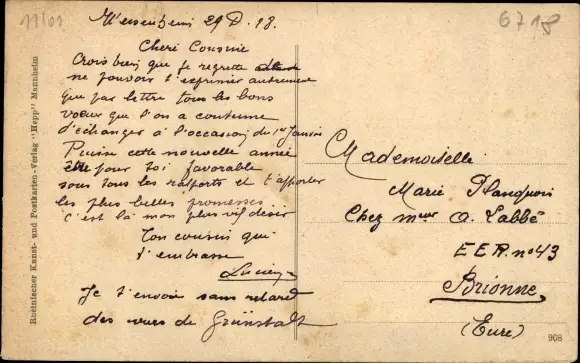 11/01
6718
29 D. 18.
Cheri Cousine
Crois bien que je regrette
ne pouvoir t'exprimer autrement
que par lettre tous les bons
vœux que l'on a coutume
d'échanger à l'occasion du 1er Janvier
Puisse cette nouvelle année
être pour toi favorable
sous tous les rapports et t'apporter
les plus belles promesses
c'est là mon plus vif désir
Ton cousin qui
t'embrasse
Lucien
Je t'envoie sans retard
des vues de Grünstadt
Mademoiselle
Marie Planquois
Chez mme A. Labbé
E E R. no 43
Brionne
(Eure)
Rheinischer Kunst- und Postkarten-Verlag "Hepp" Mannheim
908